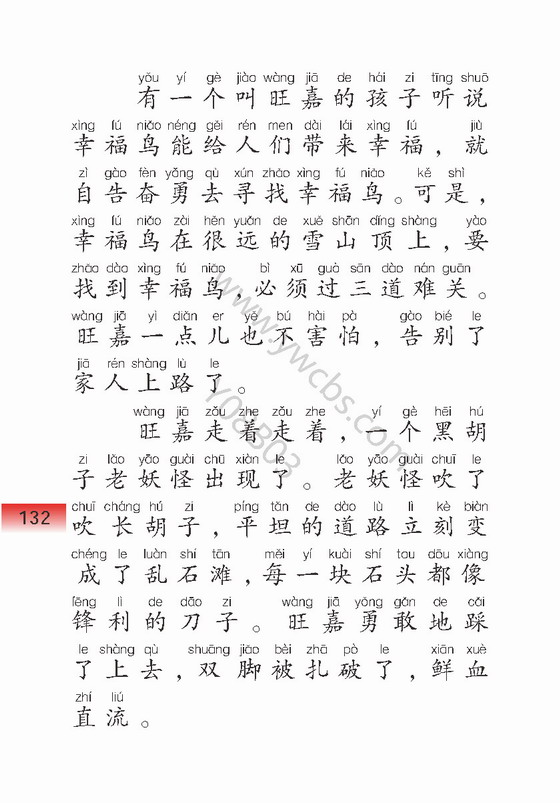 yǒu yí gè jiào wàng jiā de hái zi tīng shuō
有一个叫旺嘉的孩子听说
xìng fú niǎo néng gěi rén men dài lái xìng fú jiù
幸福鸟能给人们带来幸福，就
zì gào fèn yǒng qù xún zhǎo xìng fú niǎo kě shì
自告奋勇去寻找幸福鸟。可是，
xìng fú niǎo zài hěn yuǎn de xuě shān dǐng shàng yào
幸福鸟在很远的雪山顶上，要
zhǎo dào xìng fú niǎo bì xū guò sān dào nán guān
找到幸福鸟，必须过三道难关。
wàng jiā yì diǎn er yě bú hài pà gào bié le
旺嘉一点儿也不害怕，告别了
jiā rén shàng lù le
家人上路了。
wàng jiā zǒu zhe zǒu zhe yí gè hēi hú
旺嘉走着走着，一个黑胡
zi lǎo yāo guài chū xiàn le lǎo yāo guài chuī le
子老妖怪出现了。老妖怪吹了
132
chuī cháng hú zi píng tǎn de dào lù lì kè biàn
吹长胡子，平坦的道路立刻变
chéng le luàn shí tān měi yí kuài shí tou dōu xiàng
成了乱石滩，每一块石头都像
fēng lì de dāo zi wàng jiā yǒng gǎn de cǎi
锋利的刀子。旺嘉勇敢地踩
le shàng qù shuāng jiǎo bèi zhā pò le xiān xuè
了上去，双脚被扎破了，鲜血
zhí liú
直流。
www.ywcbs.com
Y08B03